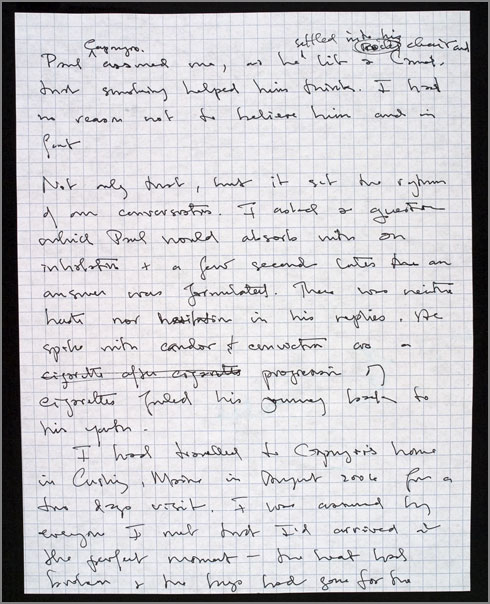 Caponigro. settled into his
Paul assured me, as he lit a Camel, chair and
that smoking helped him think. I had
no reason not to believe him and in
fact
Not only that, but it set the rythum
of our conversation. I asked a question
which Paul would absorb with an
inhalation + a few second later an
answer was formulated. There was neither
haste nor hesitation in his replies. He
spoke with candor & conviction as a
cigarette after cigarette progression of
cigarettes fueled his journey back to
his youth.
I had travelled to Caponigro's home
in Cushing, Maine in August 2006 for a
two days visit. I was assured by
everyone I met that I'd arrived at
the perfect moment — the heat had
broken & the bugs had gone for the